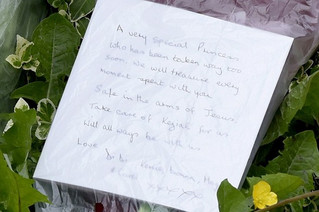 A very special Princess
who has been taken way too
soon. we will treasure every
moment spent with you
Safe in the arms of
Take care of for us
will always be with us
Love